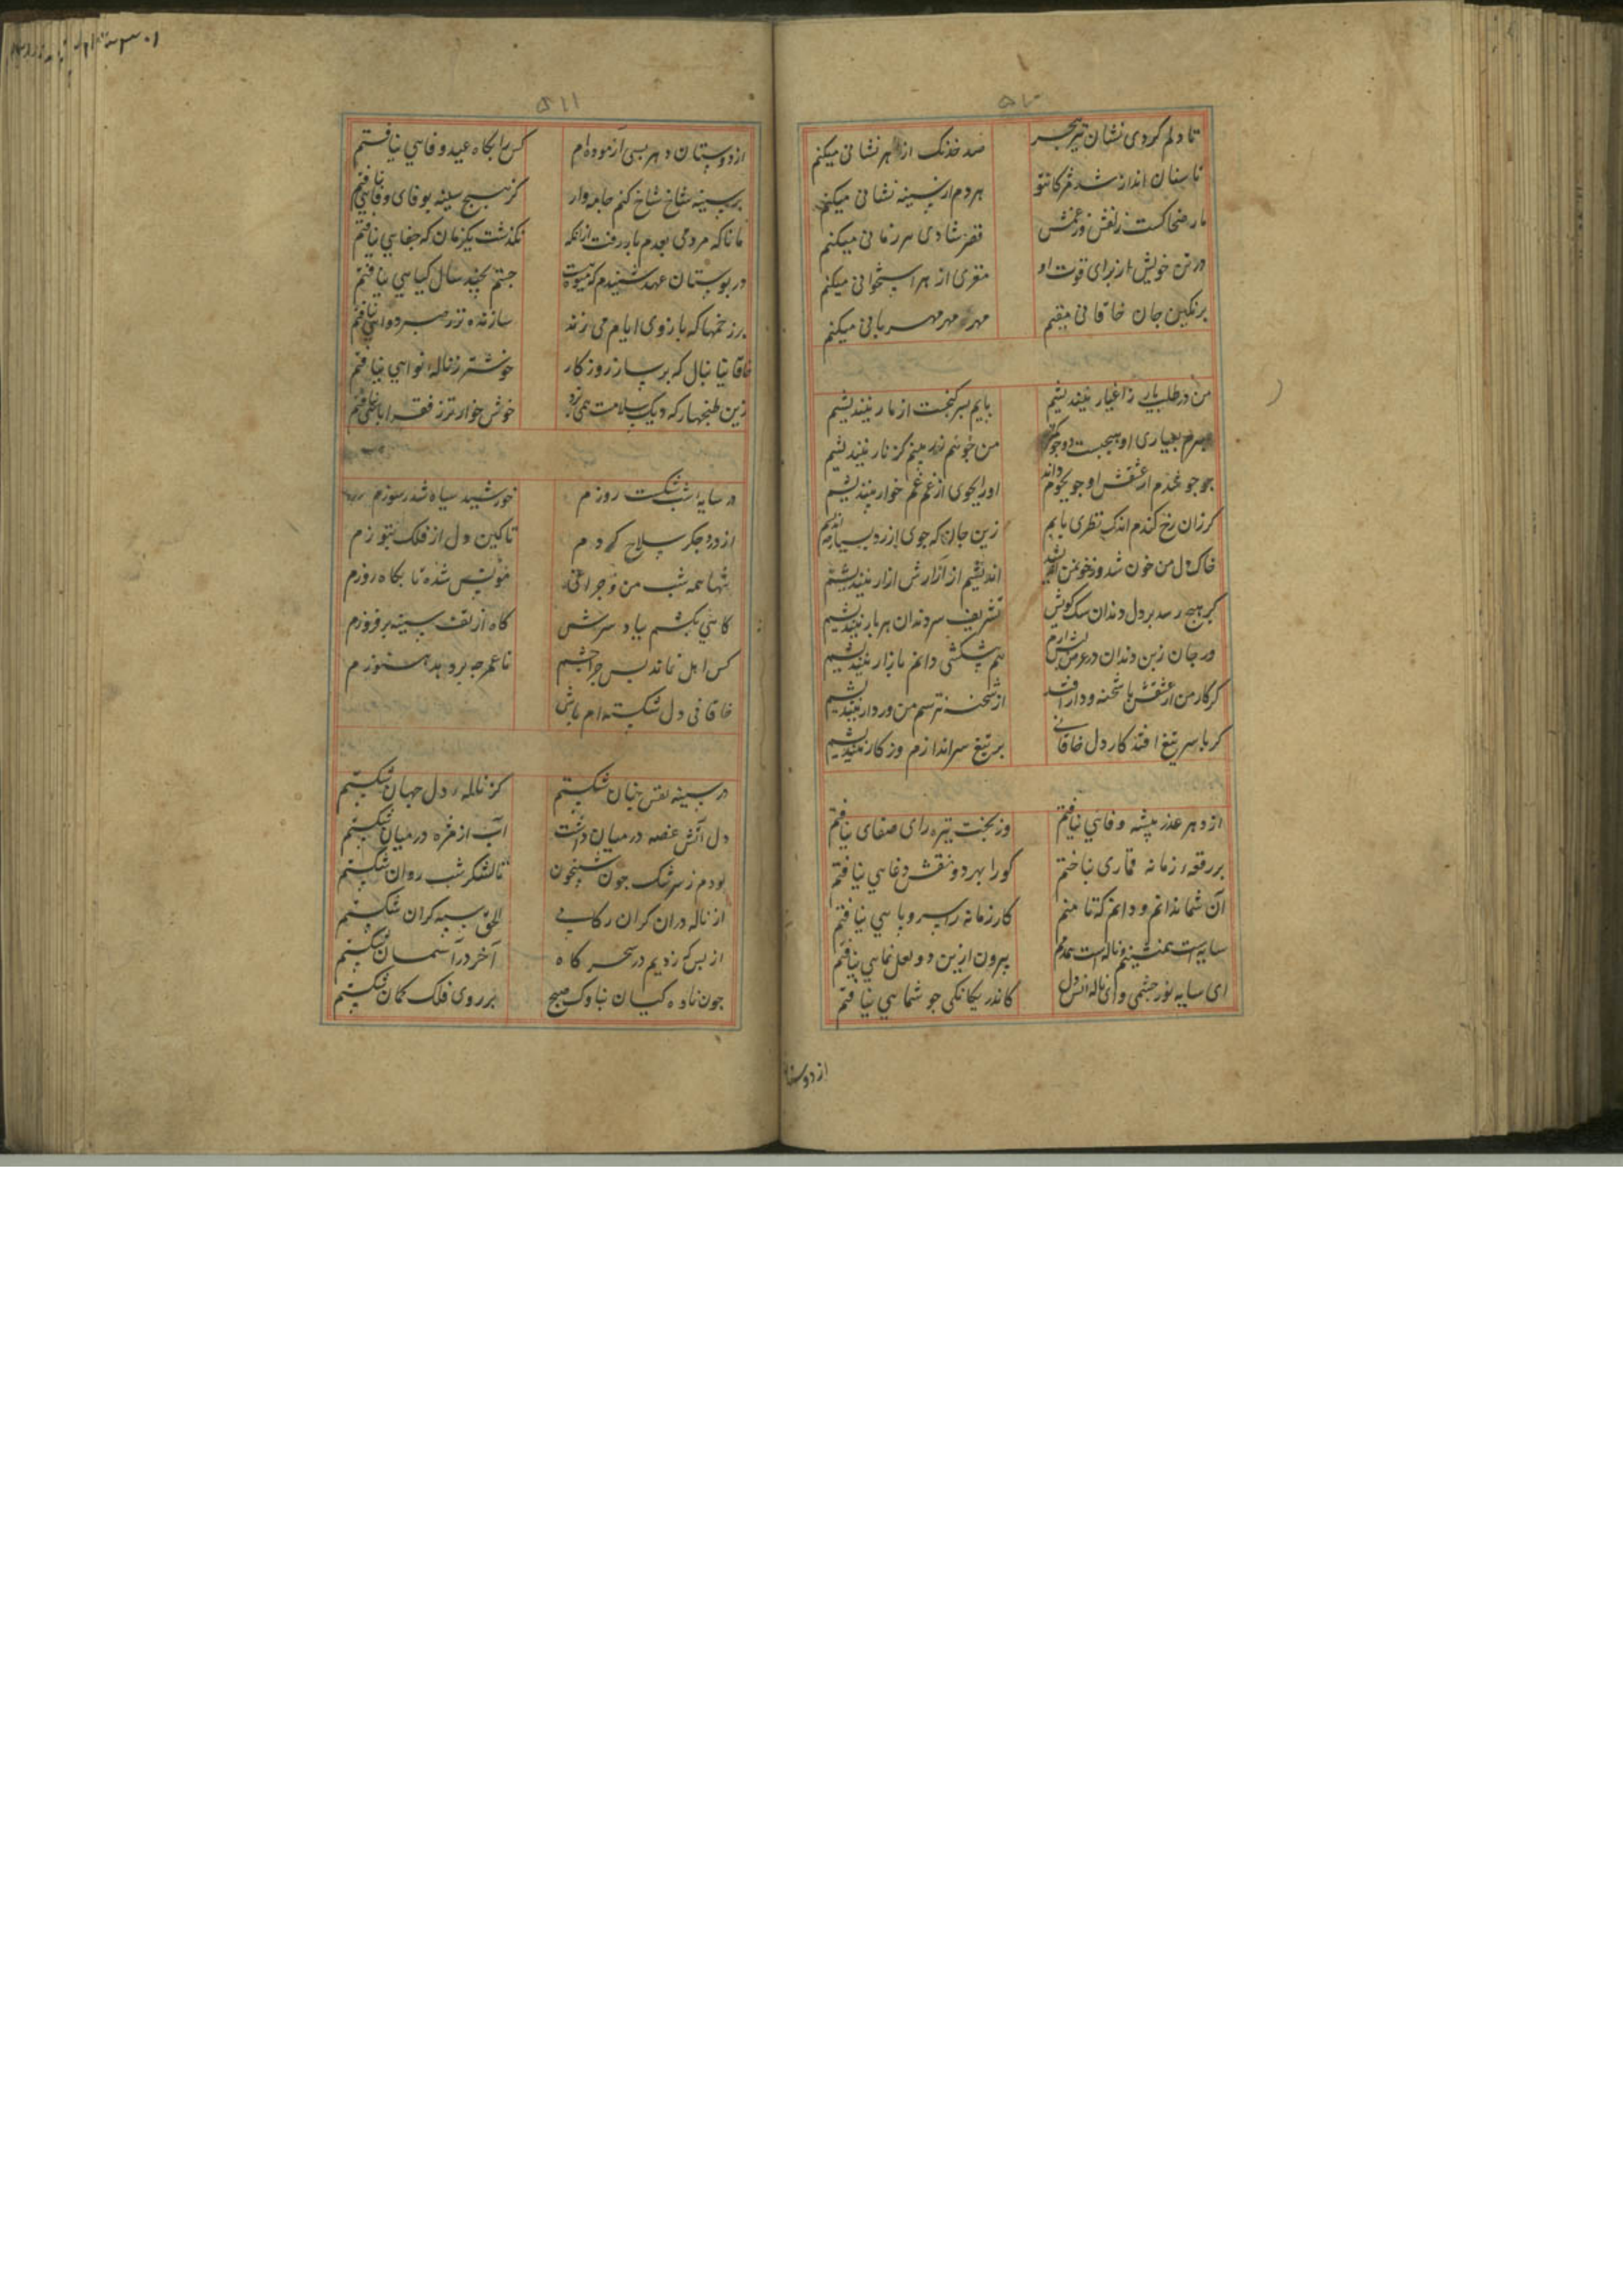 تا دلم کردی نشان تیر هجر
صد خدنک از هر نشانی میکنم
تا سنان انداز شد مژکان تو
هر دم از سینه نشانی میکنم
مار ضحاکست زلفش وز غمش
قصر شادی هر زمانی میکنم
در تن خویش از برای قوت او
مغزی از هر استخوانی میکنم
بر نکین جان خاقانی مقیم
مهر مهر مهربانی میکنم
من در طلب یار ز اغیار نیندیشم
یابم سر کنجت از مار نیندیشم
من خو نهم کز نار نیندیشم
جو جو شدم از عشقش او جو بجوم داند
او را بجوی از غم غم خوار نیندیشم
کر زان رخ کندم اندک نظری یابم
زین جان که جوی ارزد بسیار نیندیشم
خاک دل من خون شد وز خون
اندیشم از آزارش از ار نیندیشم
کر هیچ رسد بر دل دندان سک کویش
تشریف سر دندان هر بار نیندیشم
ور جان زبن دندان در عرض لبش آرم
هم پیشکشی دانم بازار نیندیشم
کر کار من از عشقش با شحنه و دار افتد
از شحنه نترسم من ور دار نیندیشم
کر با سر تیغ افتد کار دل خاقانی
بر تیغ سر اندازم وز کار نیندیشم
از دهر غدر پیشه وفائی نیافتم
وز بخت تیره رای صفای نیافتم
بر رقعه زمانه قماری نباختم
کو را بهر دو نقش دغایی نیافتم
آن شما ندانم و دانم که تا منم
کار زمانه را سر و پایی نیافتم
سایه است همنشینم و ناله است همدمم
بیرون ازین دو لعل نمایی نیافتم
ای سایه نور چشمی و ای ناله انس دل
کاندر یکانکی جو شمایی نیافتم
از دوستا
۵۱۱
از دوستان دهر بسی آزموده‌ام
کس را بکاه عهد وفایی نیافتم
بر سینه شاخ شاخ کنم جامه‌وار
کز هیچ سینه بوی وفایی نیافتم
مانا که مردمی بعدم باز رفت از انکه
نکذشت یکزمان که جفایی نیافتم
در بوستان عهد شنیدم که میوه
جستم بچند سال کیایی نیافتم
بر زخمها که بازوی ایام می زند
سازنده تر ز صبر دوایی نیافتم
خاقانیا بنال که بر ساز روزکار
خوشتر ز ناله نوایی نیافتم
زین طبخها که دیک سلامت همی پزد
خوش خوارتر ز فقر ابایی نیافتم
در سایه شب شکست روزم
خورشید سیاه شد ز سوزم
از درد جکر سلاح کردم
تا کین دل از فلک بتوزم
شبها همه شب من و چراغی
مونس شده تا بکاه روزم
کاهی بکشم بباد سرش
کاه از تف سینه بر فروزم
کس اهل نماند پس جرا چشم
تا عمر چه بر دهد هنوزم
خاقانی دل شکسته‌ام باش
در سینه نفس جنان شکستم
کز ناله دل جهان شکستم
دل آتش غصه در میان داشت
آب از مژه در میان شکستم
بودم ز سرشک جون شبیخون
تا لشکر شب روان شکستم
از ناله دران کران رکابی
الحق سپه کران شکستم
از بس که زدیم در سحر کاه
آخر در آسمان شکستم
جون ناوک صبح
بر روی فلک کمان شکستم